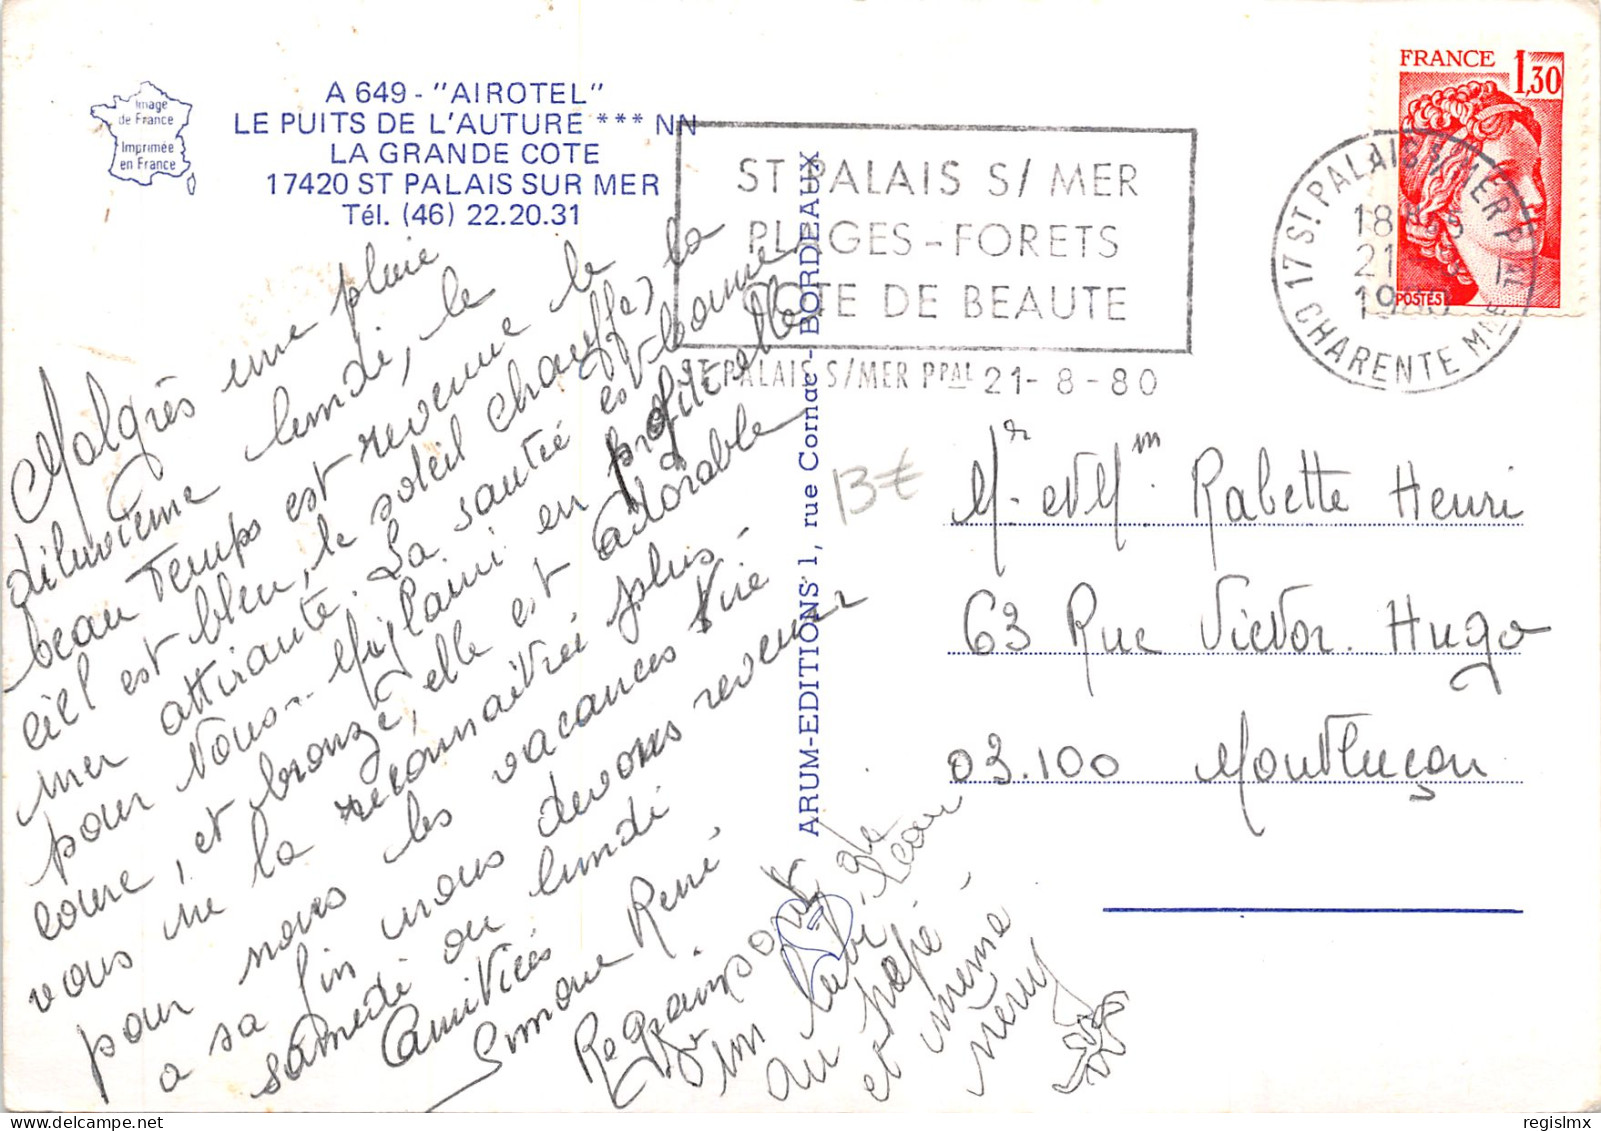 Image
de France
Imprimée
en France
A 649 - "AIROTEL"
LE PUITS DE L'AUTURE *** NN
LA GRANDE COTE
17420 ST PALAIS SUR MER
Tél. (46) 22.20.31
ST PALAIS S/ MER
PLAGES - FORETS
COTE DE BEAUTE
ST PALAIS S/MER PPAL 21-8-80
17 ST PALAIS S/ MER PPAL
18H
21
1980
CHARENTE MME
FRANCE 1,30
POSTES
Malgrès une pluie
diluvienne lundi, le
beau Temps est revenue le
ciel est bleu, le soleil chauffe, la
mer attirante. La santée est bonne
pour Nous. en profite elle
coure, et bronze, elle est adorable
vous ne la reconnaitrée plus.
pour nous les vacances tire
a sa fin nous devons revenir
samedi ou lundi
Amitiés
Simone René
un
au papé
et meme
ARUM-EDITIONS 1, rue Cornac - BORDEAUX
13€
Mr et Mm Rabette Henri
63 Rue Victor. Hugo
03.100 Montluçon
regislmx